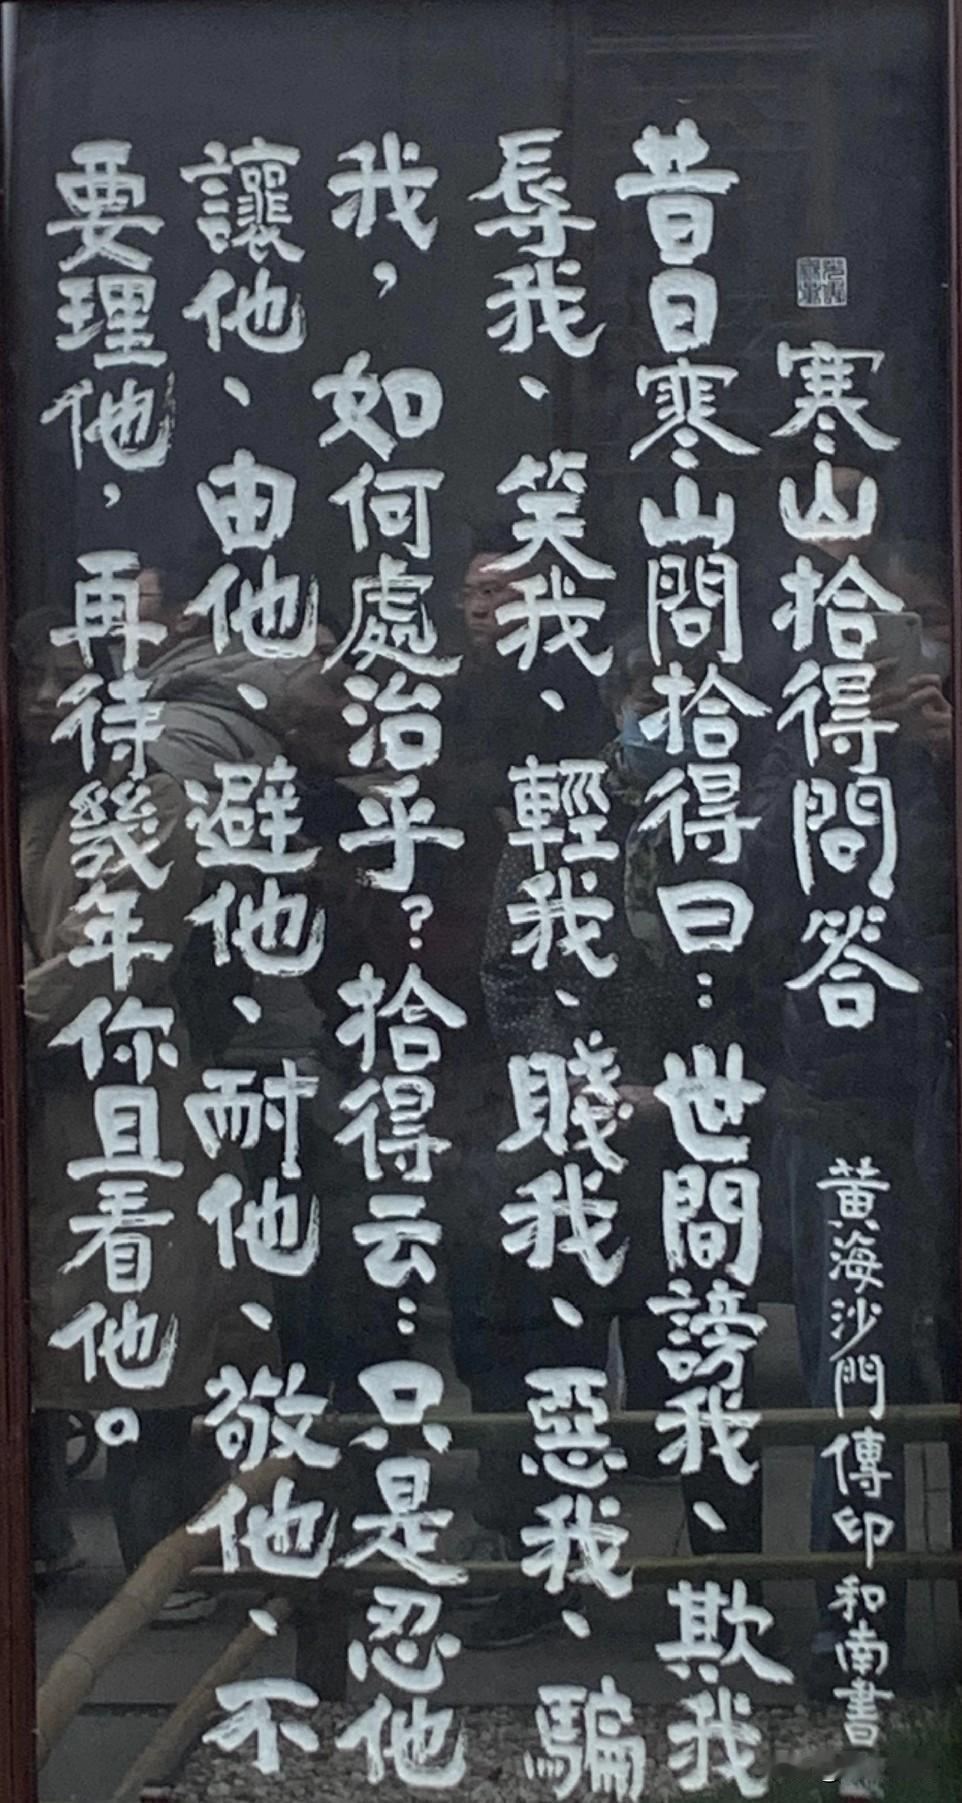 寒山拾得問答
黃海沙門傳印和南書
昔日寒山問拾得曰：世間謗我、欺我
辱我、笑我、輕我、賤我、惡我、騙
我，如何處治乎？拾得云：只是忍他
讓他、由他、避他、耐他、敬他、不
要理他，再待幾年你且看他。